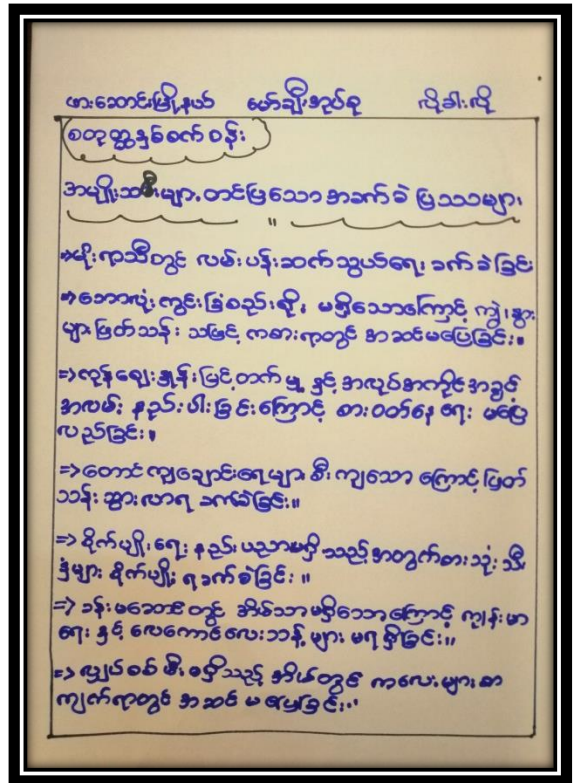 ဖားဆောင်းမြို့နယ် မော်ချီးအုပ်စု လိုခါးလို
စတုတ္ထနှစ်စက်ဝန်း
အမျိုးသမီးများ တင်ပြသောအခက်ခဲ ပြဿနာများ
"
⇒မိုးရာသီတွင် လမ်းပန်းဆက်သွယ်ရေး ခက်ခဲခြင်း
⇒ဘောလုံးကွင်းခြံစည်းရိုး မရှိသောကြောင့် ကျွဲ၊နွား
များဖြတ်သန်း သဖြင့် ကစားရာတွင် အဆင်မပြေခြင်း။
⇒ကုန်ဈေးနှုန်းမြင့်တက်မှု နှင့် အလုပ်အကိုင်အခွင့်
အလမ်း နည်းပါးခြင်းကြောင့် စားဝတ်နေရေး မပြေ
လည်ခြင်း။
⇒တောင်ကျချောင်းရေများ စီးကျသော ကြောင့်ဖြတ်
သန်းသွားလာရ ခက်ခဲခြင်း။
⇒စိုက်ပျိုးရေး နည်းပညာမရှိသည့်အတွက်စားသုံးသီး
နှံများ စိုက်ပျိုးရခက်ခဲခြင်း။
⇒ခန်းမဆောင်တွင် အိမ်သာမရှိသောကြောင့် ကျန်းမာ
ရေး နှင့် လေကောင်လေးသန့်များ မရရှိခြင်း။
⇒လျှပ်စစ်မီး မရှိသည့် အိမ်တွင် ကလေးများစာ
ကျက်ရာတွင် အဆင်မပြေခြင်း။